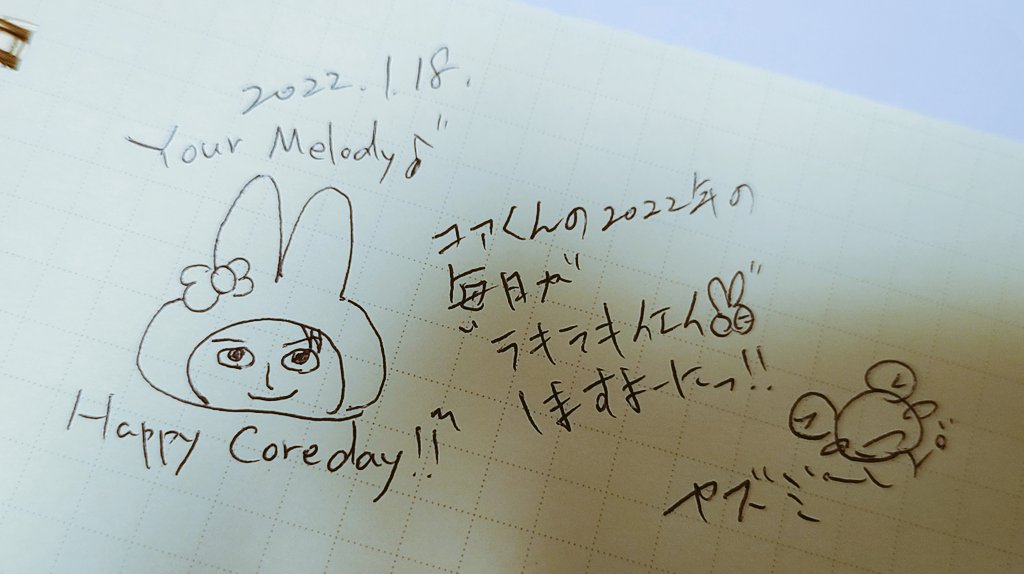 2022.1.18.
Your Melody♪"
コアくんの2022年の
毎日が
"ラキラキ
しますよーにっ!!
Happy Coreday!!
ヤズミ